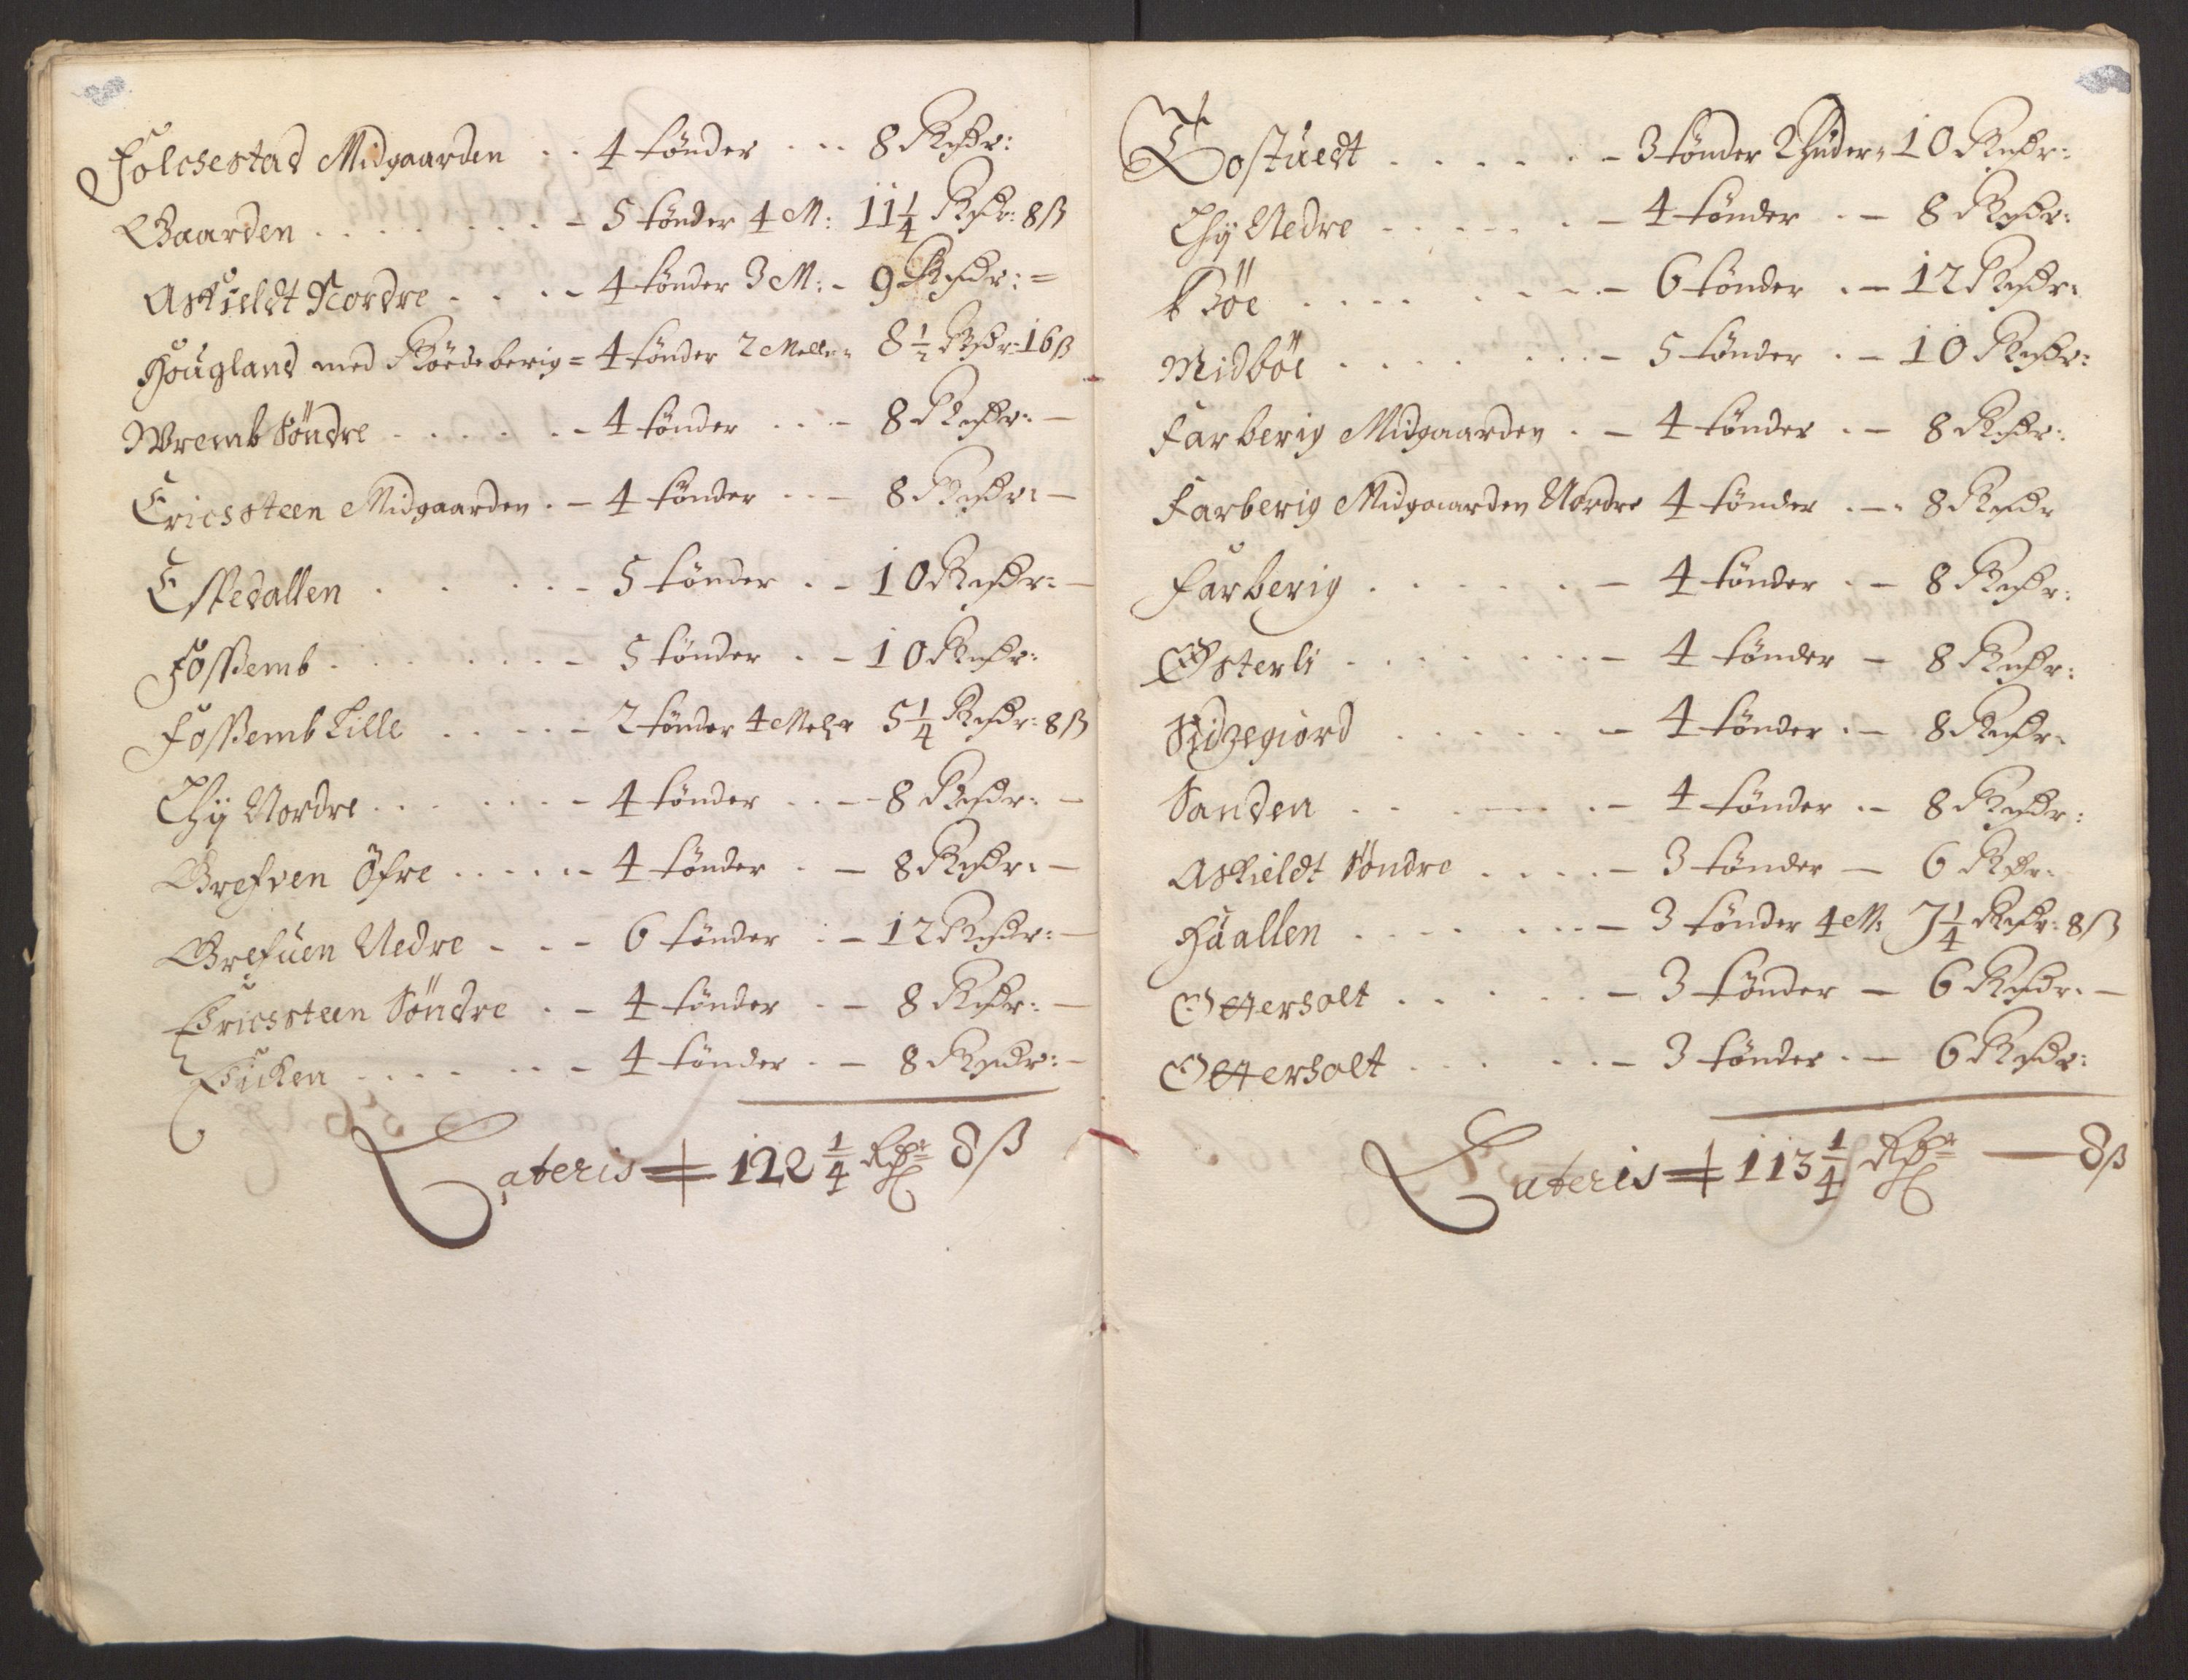 Folchestad Midgaarden . . 4 tønder . . . 8 Rixdr:
Gaarden . . . . . . . - 5 tønder 4 M: 11 1/4 Rixdr: 8 ß
Askieldt Nordre . . . - 4 tønder 3 M: - 9 Rixdr: =
Hougland med Röedeberig = 4 tønder 2 Meller 8 1/2 Rixdr: 16 ß
Wremb Söndre . . . . . - 4 tønder . . . - 8 Rixdr: -
Ericssteen Midgaarden . - 4 tønder . . - 8 Rixdr: -
Espedallen . . . . . - 5 tønder . - 10 Rixdr: -
Fossemb . . . . . . . - 5 tønder . - 10 Rixdr:
Fossemb Lille . . . . - 2 tønder 4 Meler 5 1/4 Rixdr: 8 ß
Thy Nordre . . . . . . - 4 tønder . . - 8 Rixdr: -
Grefven Öfre . . . . . - 4 tønder . - 8 Rixdr: -
Grefuen Nedre - . - - 6 tønder : - 12 Rixdr: -
Ericssteen Söndre . - 4 tønder . - 8 Rixdr: -
. . . . . . - 4 tønder . - 8 Rixdr: -
Lateris = 122 1/4 Rdr 8 ß
Tostuedt . . . . . . - 3 tønder 2 huder = 10 Rixdr:
Thy Nedre . . . . . . - 4 tønder . - 8 Rixdr:
Böe . . . . . . . - 6 tønder . - 12 Rixdr:
Midböe . . . . . . . - 5 tønder . - 10 Rixdr:
Farberig Midgaarden . - 4 tønder . - 8 Rixdr:
Farberig Midgaarden Nordre 4 tønder . - . 8 Rixdr
Farberig . . . . . . - 4 tønder . - 8 Rixdr:
Østerli . . . . . . . - 4 tønder - 8 Rixdr:
Sidzegiord . . . . . . - 4 tønder . - 8 Rixdr:
Sanden . . . . . . - 4 tønder . - 8 Rixdr:
Askieldt Söndre . . . . - 3 tønder - 6 Rdr:
Haallen . . . . . . . - 3 tønder 4 M: 7 1/4 Rixdr: 8 ß
Otterholt . . . . . - 3 tønder - 6 Rixdr: -
Otterholt . . . . . - 3 tønder . - 6 Rixdr:
Lateris = 113 1/4 Rdr - 8 ß